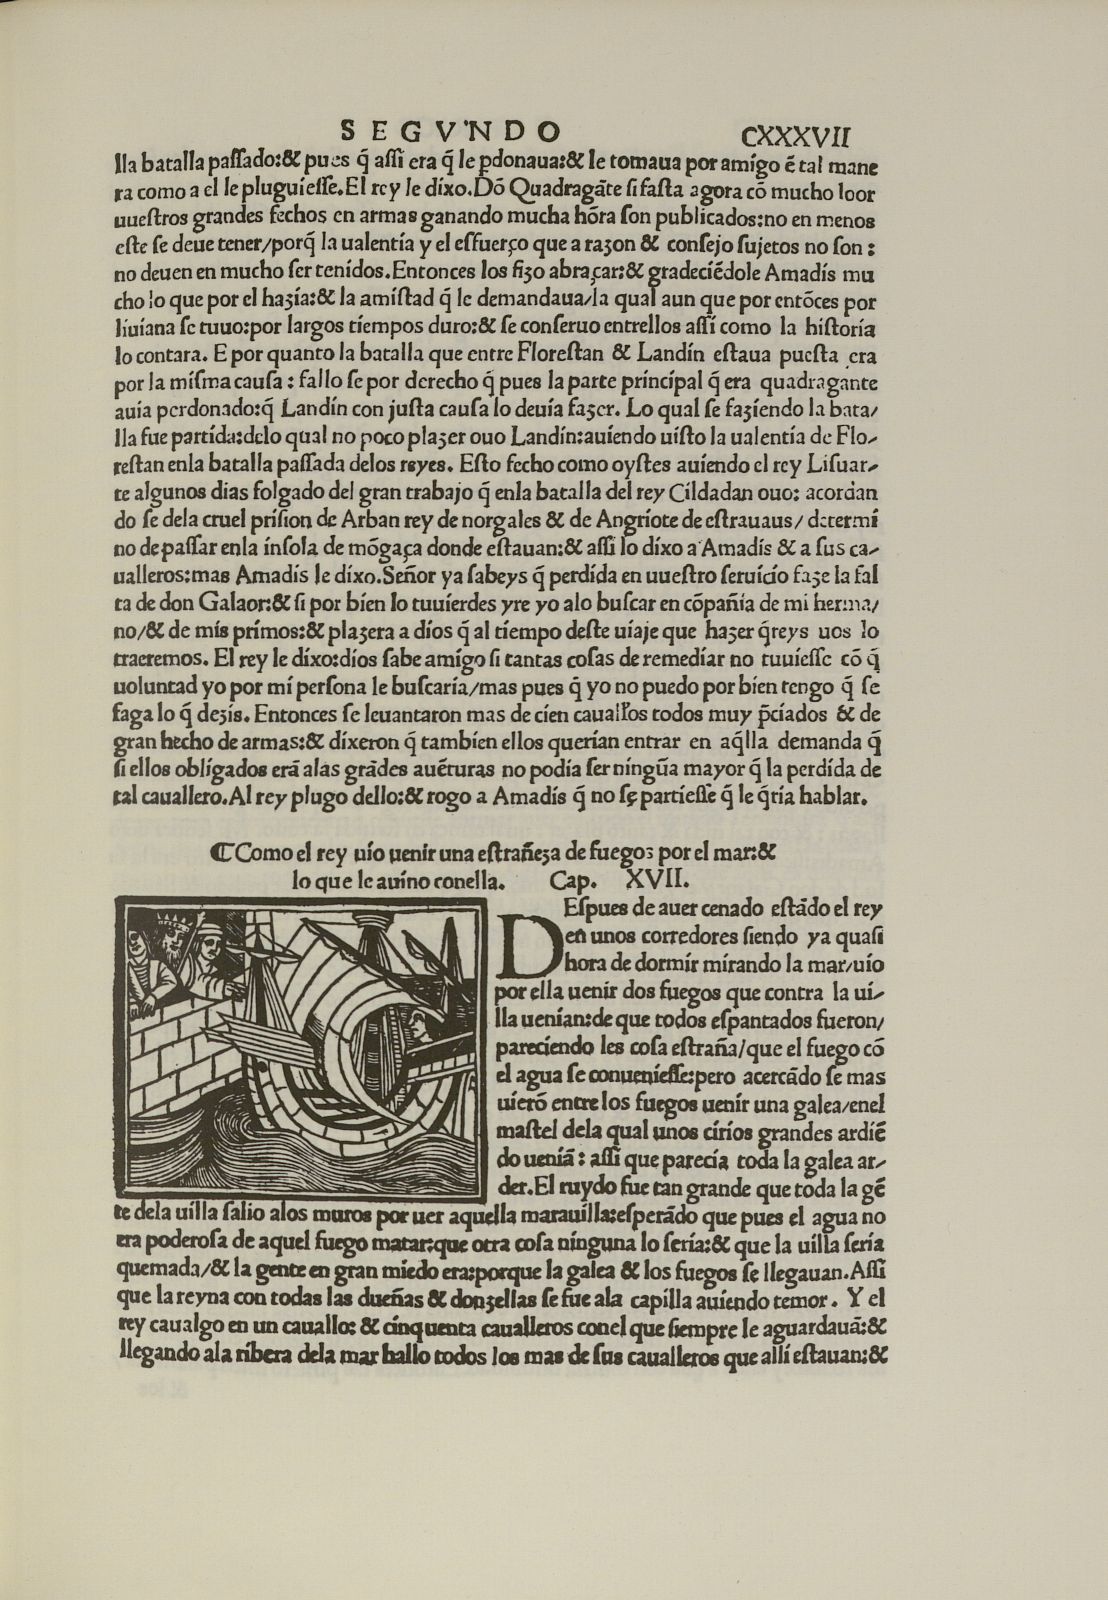 SEGVNDO CXXXVII
lla batalla paſſado:& pues q̃ aſſi era q̃ le ꝑdonaua:& le tomaua por amigo ẽ tal mane
ra como a el le pluguieſſe.El rey le dixo.Dõ Quadragãte ſi faſta agora cõ mucho loor
uueſtros grandes fechos en armas ganando mucha hõra ſon publicados:no en menos
eſte ſe deue tener/porq̃ la ualentia y el eſfuerço que a razon & conſejo ſujetos no ſon:
no deuen en mucho ſer tenidos.Entonces los fizo abraçar:& gradeciẽdole Amadis mu
cho lo que por el hazia:& la amiſtad q̃ le demandaua/la qual aun que por entõces por
liuiana ſe tuuo:por largos tiempos duro:& ſe conſeruo entrellos aſſi como la hiſtoria
lo contara. E por quanto la batalla que entre Floreſtan & Landin eſtaua pueſta era
por la miſma cauſa: fallo ſe por derecho q̃ pues la parte principal q̃ era quadragante
auia perdonado:q̃ Landin con juſta cauſa lo deuia fazer. Lo qual ſe faziendo la bata/
lla fue partida:delo qual no poco plazer ouo Landin:auiendo uiſto la ualentia de Flo/
reſtan enla batalla paſſada delos reyes. Eſto fecho como oyſtes auiendo el rey Liſuar/
te algunos dias folgado del gran trabajo q̃ enla batalla del rey Cildadan ouo: acordan
do ſe dela cruel priſion de Arban rey de norgales & de Angriote de eſtrauaus/ determi
no de paſſar enla inſola de mõgaça donde eſtauan:& aſſi lo dixo a Amadis & a ſus ca/
ualleros:mas Amadis le dixo.Señor ya ſabeys q̃ perdida en uueſtro ſeruicio faze la fal
ta de don Galaor:& ſi por bien lo tuuierdes yre yo alo buſcar en cõpañia de mi herma/
no/& de mis primos:& plazera a dios q̃ al tiempo deſte uiaje que hazer q̃reys uos lo
traeremos. El rey le dixo:dios ſabe amigo ſi tantas coſas de remediar no tuuieſſe cõ q̃
uoluntad yo por mi perſona le buſcaria/mas pues q̃ yo no puedo por bien tengo q̃ ſe
faga lo q̃ dezis. Entonces ſe leuantaron mas de cien cauall'os todos muy p̃ciados & de
gran hecho de armas:& dixeron q̃ tambien ellos querian entrar en aq̃lla demanda q̃
ſi ellos obligados erã alas grãdes auẽturas no podia ſer ningũa mayor q̃ la perdida de
tal cauallero.Al rey plugo dello:& rogo a Amadis q̃ no ſe partieſſe q̃ le q̃ria hablar.
¶Como el rey uio uenir una eſtrañeza de fuegos por el mar:&
lo que le auino conella. Cap. XVII.
DEſpues de auer cenado eſtãdo el rey
en unos corredores ſiendo ya quaſi
hora de dormir mirando la mar/uio
por ella uenir dos fuegos que contra la ui/
lla uenian:de que todos eſpantados fueron/
pareciendo les coſa eſtraña/que el fuego cõ
el agua ſe conuenieſſe:pero acercãdo ſe mas
uierõ entre los fuegos uenir una galea/enel
maſtel dela qual unos cirios grandes ardiẽ
do ueniã: aſſi que parecia toda la galea ar/
der.El ruydo fue tan grande que toda la gẽ
te dela uilla ſalio alos muros por uer aquella marauilla:eſperãdo que pues el agua no
era poderoſa de aquel fuego matar:que otra coſa ninguna lo ſeria:& que la uilla ſeria
quemada/& la gente en gran miedo era:porque la galea & los fuegos ſe llegauan.Aſſi
que la reyna con todas las dueñas & donzellas ſe fue ala capilla auiendo temor. Y el
rey caualgo en un cauallo: & cinquenta caualleros conel que ſiempre le aguardauã:&
llegando ala ribera dela mar hallo todos los mas de ſus caualleros que alli eſtauan:&